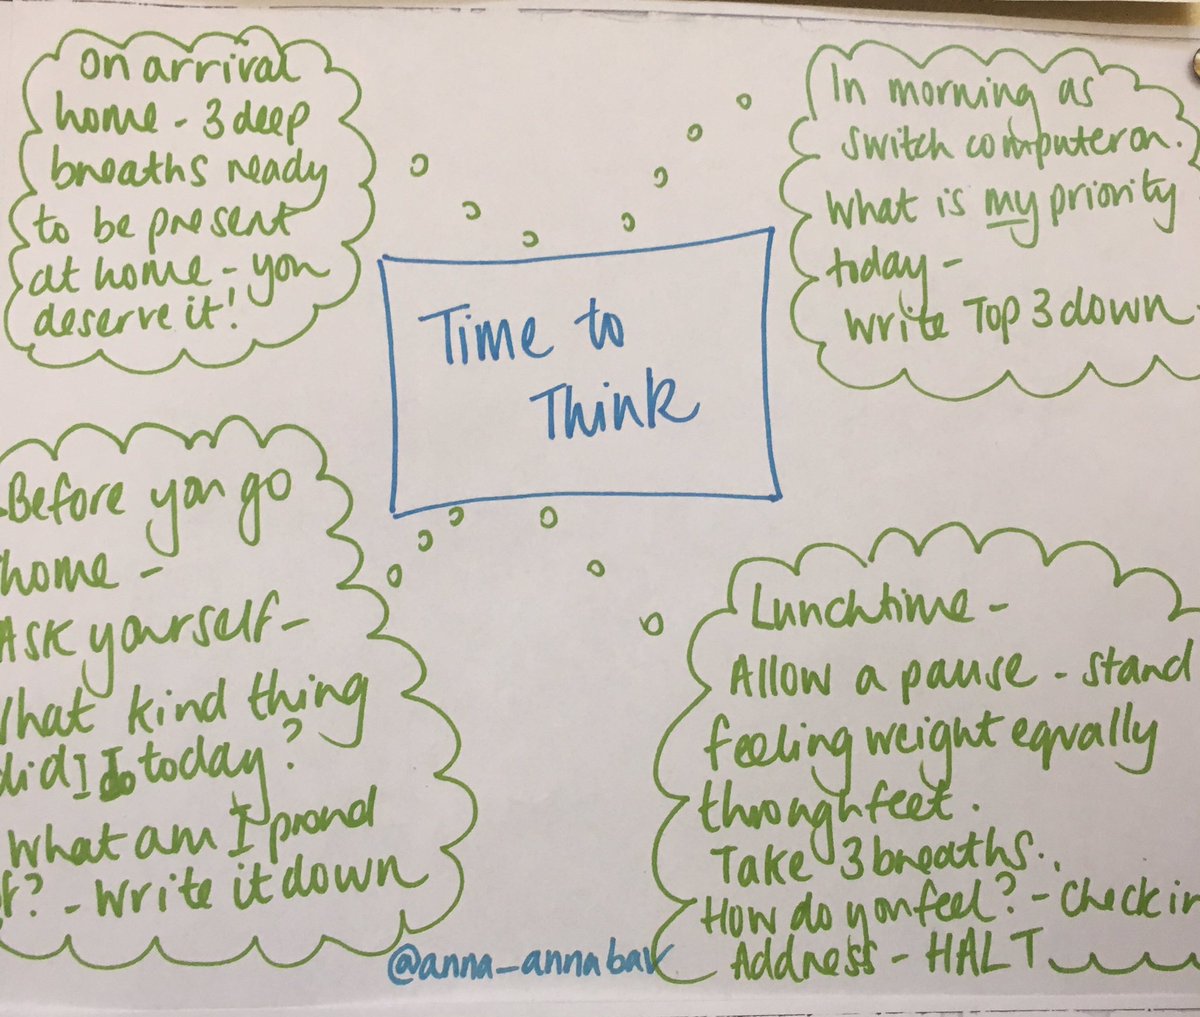 On arrival
home - 3 deep
breaths ready
to be present
at home - you
deserve it!
In morning as
switch computer on.
What is my priority
today -
Write Top 3 down.
Time to
Think
Before you go
home -
Ask yourself -
What kind thing
did I do today?
What am I proud
of? - Write it down
Lunchtime -
Allow a pause - stand
feeling weight equally
through feet.
Take 3 breaths..
How do you feel? - Check in
Address - HALT
@anna_annabav